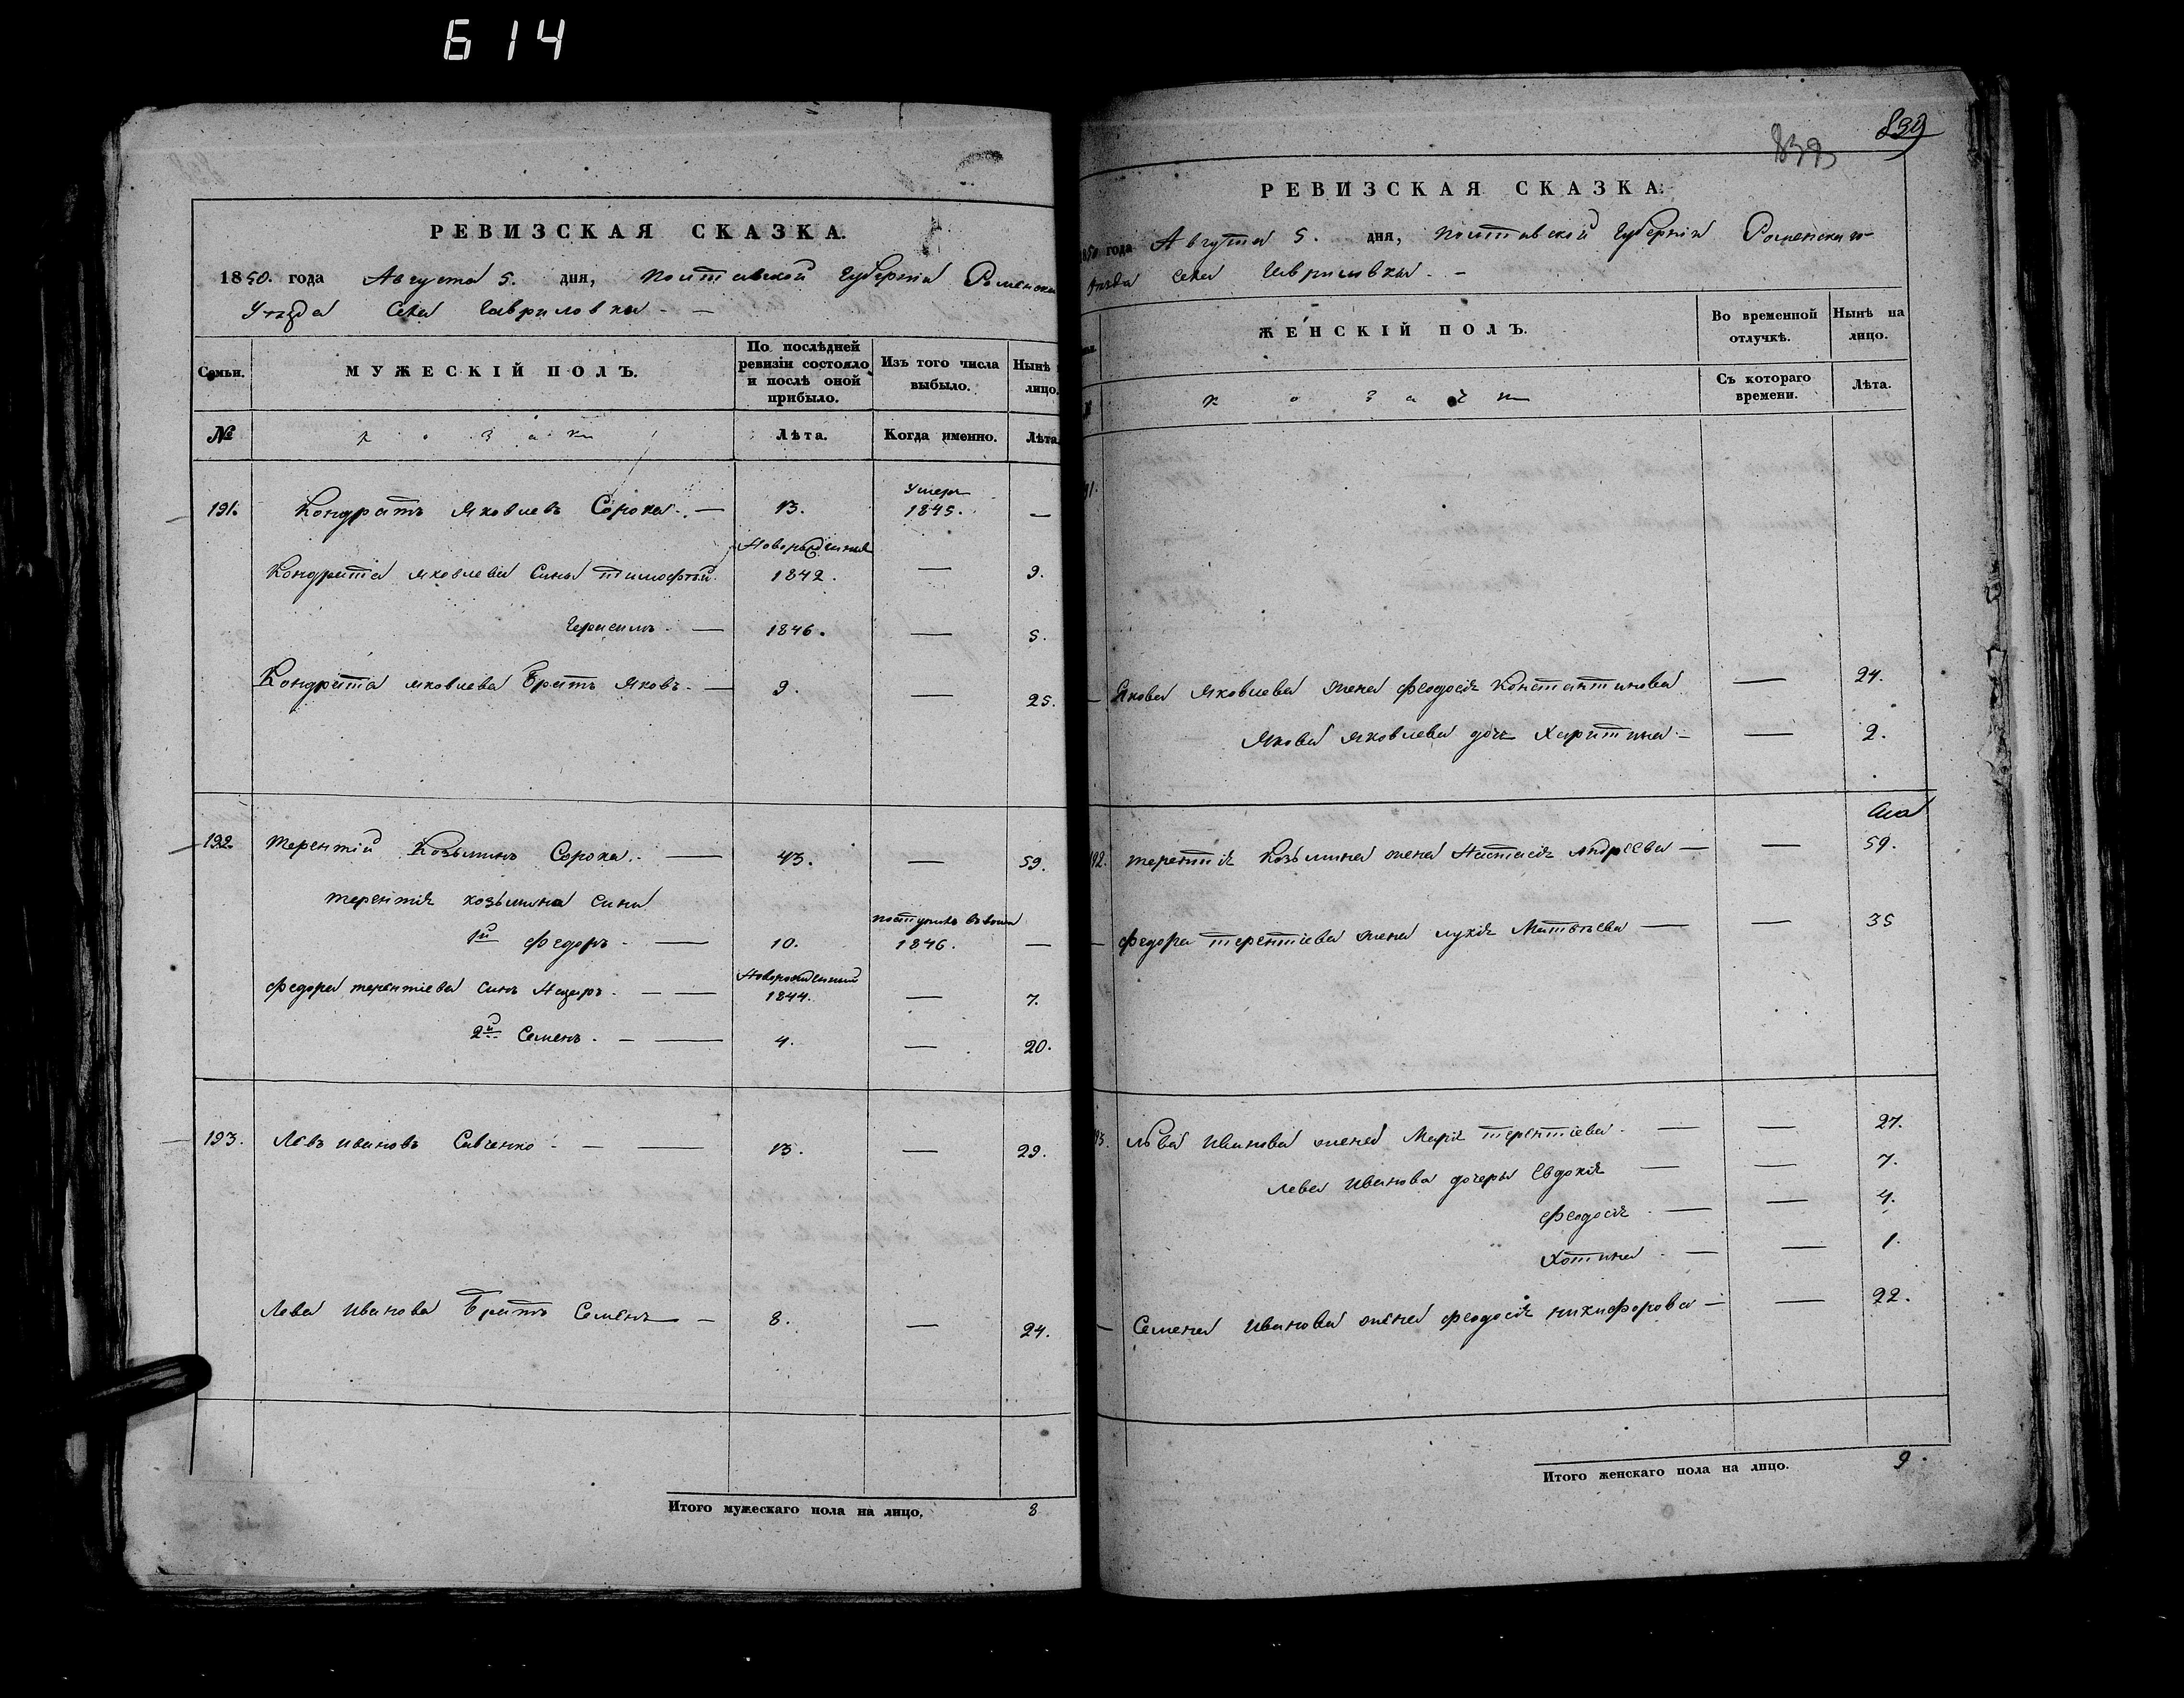 614
РЕВИЗСКАЯ СКАЗКА.
1850. года Августа 5. дня, Полтавской Губерніи Роменска
Уѣзда Села Гавриловки
Семьи. МУЖЕСКІЙ ПОЛЪ. По послѣдней ревизіи состояло и послѣ оной прибыло. Изъ того числа выбыло. Нынѣ лицо.
№ козаки Лѣта. Когда именно. Лѣта
191. Кондратъ Яковлевъ Сорока. 13. Умеръ 1845. —
Новорожденные
Кондрата Яковлева Сины Тимофѣй. 1842. — 9.
Герасимъ. 1846. — 5.
Кондрата Яковлева братъ Яковъ. 9. — 25.
192. Терентій Козьминъ Сорока. 43. — 59.
Терентія Козьмина Сини
1й Федоръ. 10. 1846. —
Федора Терентіева Синъ Назаръ. Новорожденный 1844. — 7.
2й Семенъ. 4. — 20.
193. Левъ Ивановъ Савченко 13. — 29.
Лева Иванова братъ Семенъ 8. — 24.
Итого мужескаго пола на лицо. 8
839
839
РЕВИЗСКАЯ СКАЗКА.
1850 года Августа 5. дня, Полтавской Губерніи Роменскаго
Уѣзда Села Гавриловки.
ЖЕНСКІЙ ПОЛЪ. Во временной отлучкѣ. Нынѣ на лицо.
козачки Съ котораго времени. Лѣта.
91.
Якова Яковлева жена Феодосія Константинова — 24.
Якова Яковлева дочь Харитина — 2.
192. Терентія Козьмина жена Настасія Андреева — 59.
Федора Терентіева жена Лукія Матвѣева — 35
93. Льва Иванова жена Марія Терентіева. — 27.
Лева Иванова дочеры Евдокія — 7.
Феодосія — 4.
Хотина — 1.
Семена Иванова жена Феодосія Никифорова — 22.
Итого женскаго пола на лицо. 9.